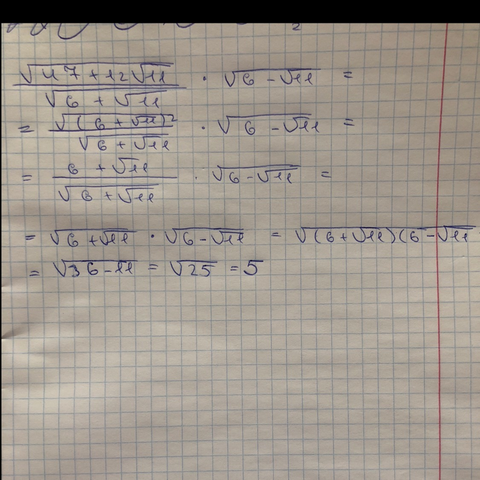 2
√(47+12√11) / √(6+√11) · √(6-√11) =
= √((6+√11)²) / √(6+√11) · √(6-√11) =
= (6+√11) / √(6+√11) · √(6-√11) =
= √(6+√11) · √(6-√11) = √((6+√11)(6-√11
= √(36-11) = √25 = 5